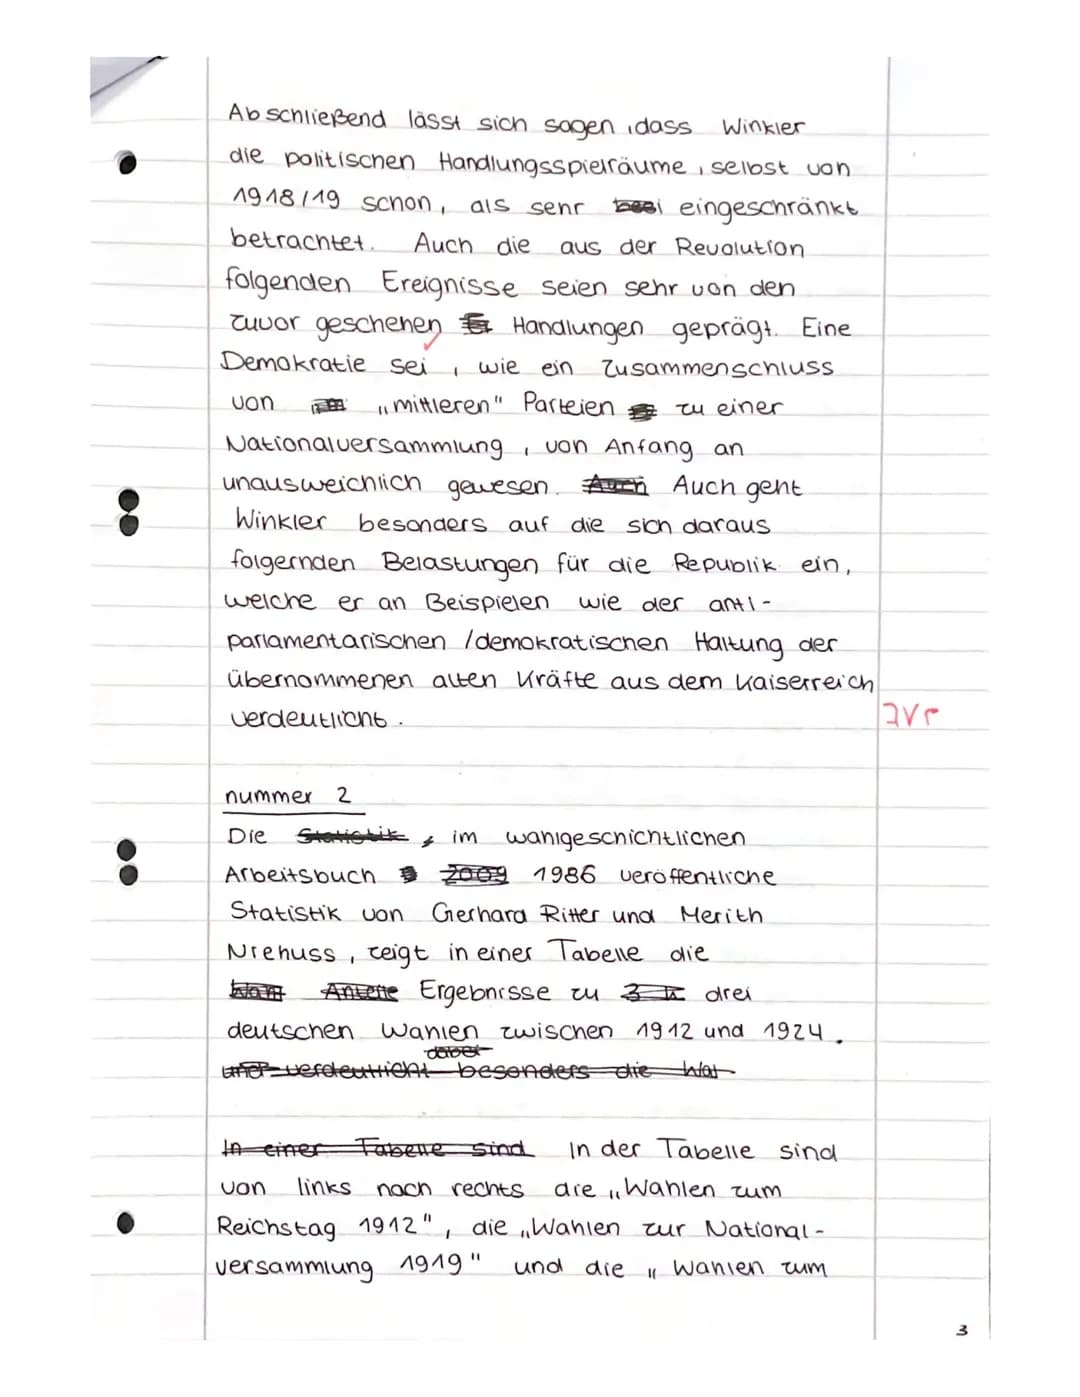 Abschließend lässt sich sagen, dass Winkler
die politischen Handlungsspielräume, selbst von
1918/19 schon, als sehr eingeschränkt
betrachtet. Auch die aus der Revolution
folgenden Ereignisse seien sehr von den
zuvor geschehen Handlungen geprägt. Eine
Demokratie sei, wie ein Zusammenschluss
von „mittleren" Parteien zu einer
Nationalversammlung, von Anfang an
unausweichlich gewesen. Auch Auch geht
Winkler besonders auf die sich daraus
folgernden Belastungen für die Republik ein,
welche er an Beispielen wie der anti-
parlamentarischen /demokratischen Haltung der
übernommenen alten Kräfte aus dem Kaiserreich
verdeutlicht.
nummer 2
Die Statistik, im wahlgeschichtlichen
Arbeitsbuch 2009 1986 veröffentliche
Statistik von Gerhard Ritter und Merith
Niehuss, zeigt in einer Tabelle die
Ergebnisse zu 3 drei
deutschen Wahlen zwischen 1912 und 1924.
dabei
und verdeutlicht besonders die Wat
In einer Tabelle sind In der Tabelle sind
von links nach rechts die „Wahlen zum
Reichstag 1912", die „Wahlen zur National-
versammlung 1919" und die „Wahlen zum
3